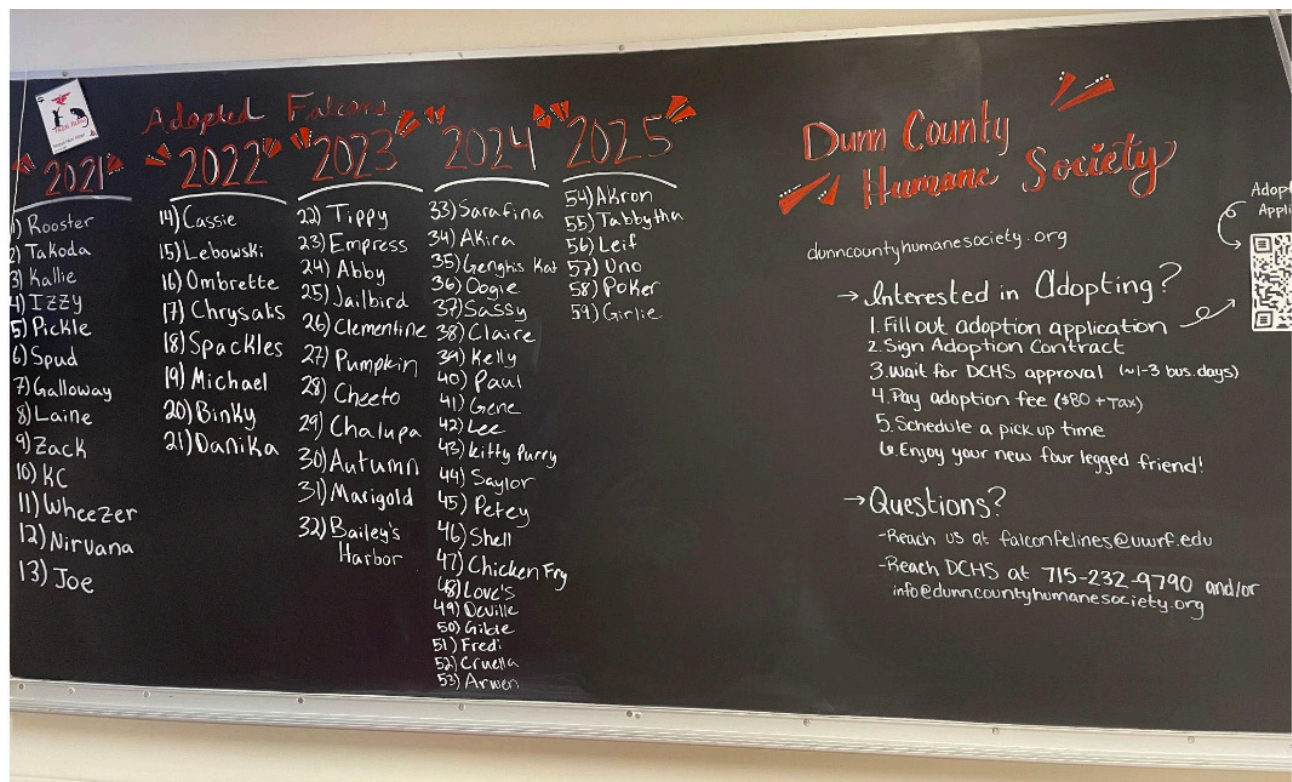 Adopted Falcons
2021
1) Rooster
2) Takoda
3) Kallie
4) Izzy
5) Pickle
6) Spud
7) Galloway
8) Laine
9) Zack
10) KC
11) Wheezer
12) Nirvana
13) Joe
2022
14) Cassie
15) Lebowski
16) Ombrette
17) Chrysalis
18) Spackles
19) Michael
20) Binky
21) Danika
2023
22) Tippy
23) Empress
24) Abby
25) Jailbird
26) Clementine
27) Pumpkin
28) Cheeto
29) Chalupa
30) Autumn
31) Marigold
32) Bailey's
Harbor
2024
33) Sarafina
34) Akira
35) Genghis Kat
36) Oogie
37) Sassy
38) Claire
39) Kelly
40) Paul
41) Gene
42) Lee
43) Kitty Purry
44) Saylor
45) Petey
46) Shell
47) Chicken Fry
48) Love's
49) Deville
50)
51) Fredi
52) Cruella
53) Arwen
2025
54) Akron
55) Tabbytha
56) Leif
57) Uno
58) Poker
59) Girlie
Dunn County
Humane Society
dunncountyhumanesociety.org
Adopt
Appli
→ Interested in Adopting?
1. Fill out adoption application
2. Sign Adoption Contract
3. Wait for DCHS approval (~1-3 bus. days)
4. Pay adoption fee ($80 + Tax)
5. Schedule a pick up time
6. Enjoy your new four legged friend!
→ Questions?
-Reach us at falconfelines@uwrf.edu
-Reach DCHS at 715-232-9790 and/or
info@dunncountyhumanesociety.org